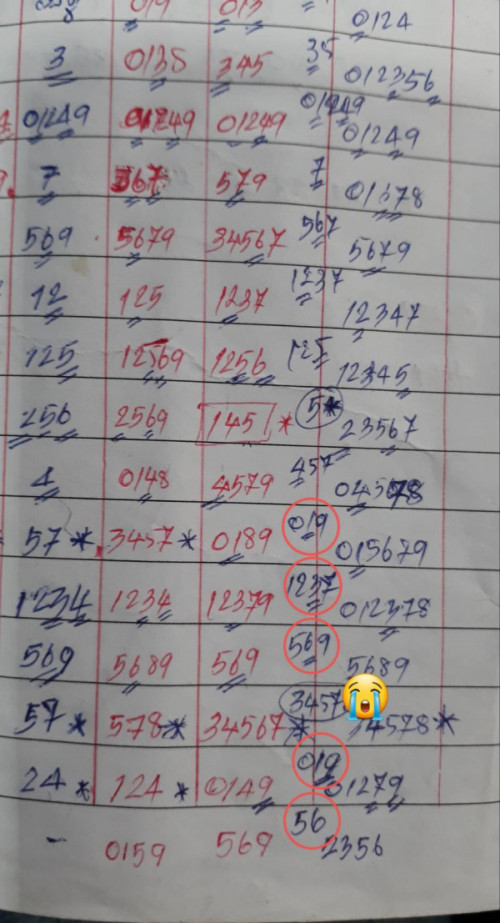 019 013 0124
3 0138 345 35 012356
01249 01249 01249 01249 01249
7 567 579 7 01678
569 5679 34567 567 5679
12 125 1237 1237 12347
125 12569 1256 125 12345
256 2569 145 * 5* 23567
4 0148 4579 457
57* 3457* 0189 019 015679
1234 1234 12379 1237 012378
569 5689 569 569 5689
57* 578* 34567* 3457 34578*
24* 124* 0149 019 01279
- 0159 569 56 2356